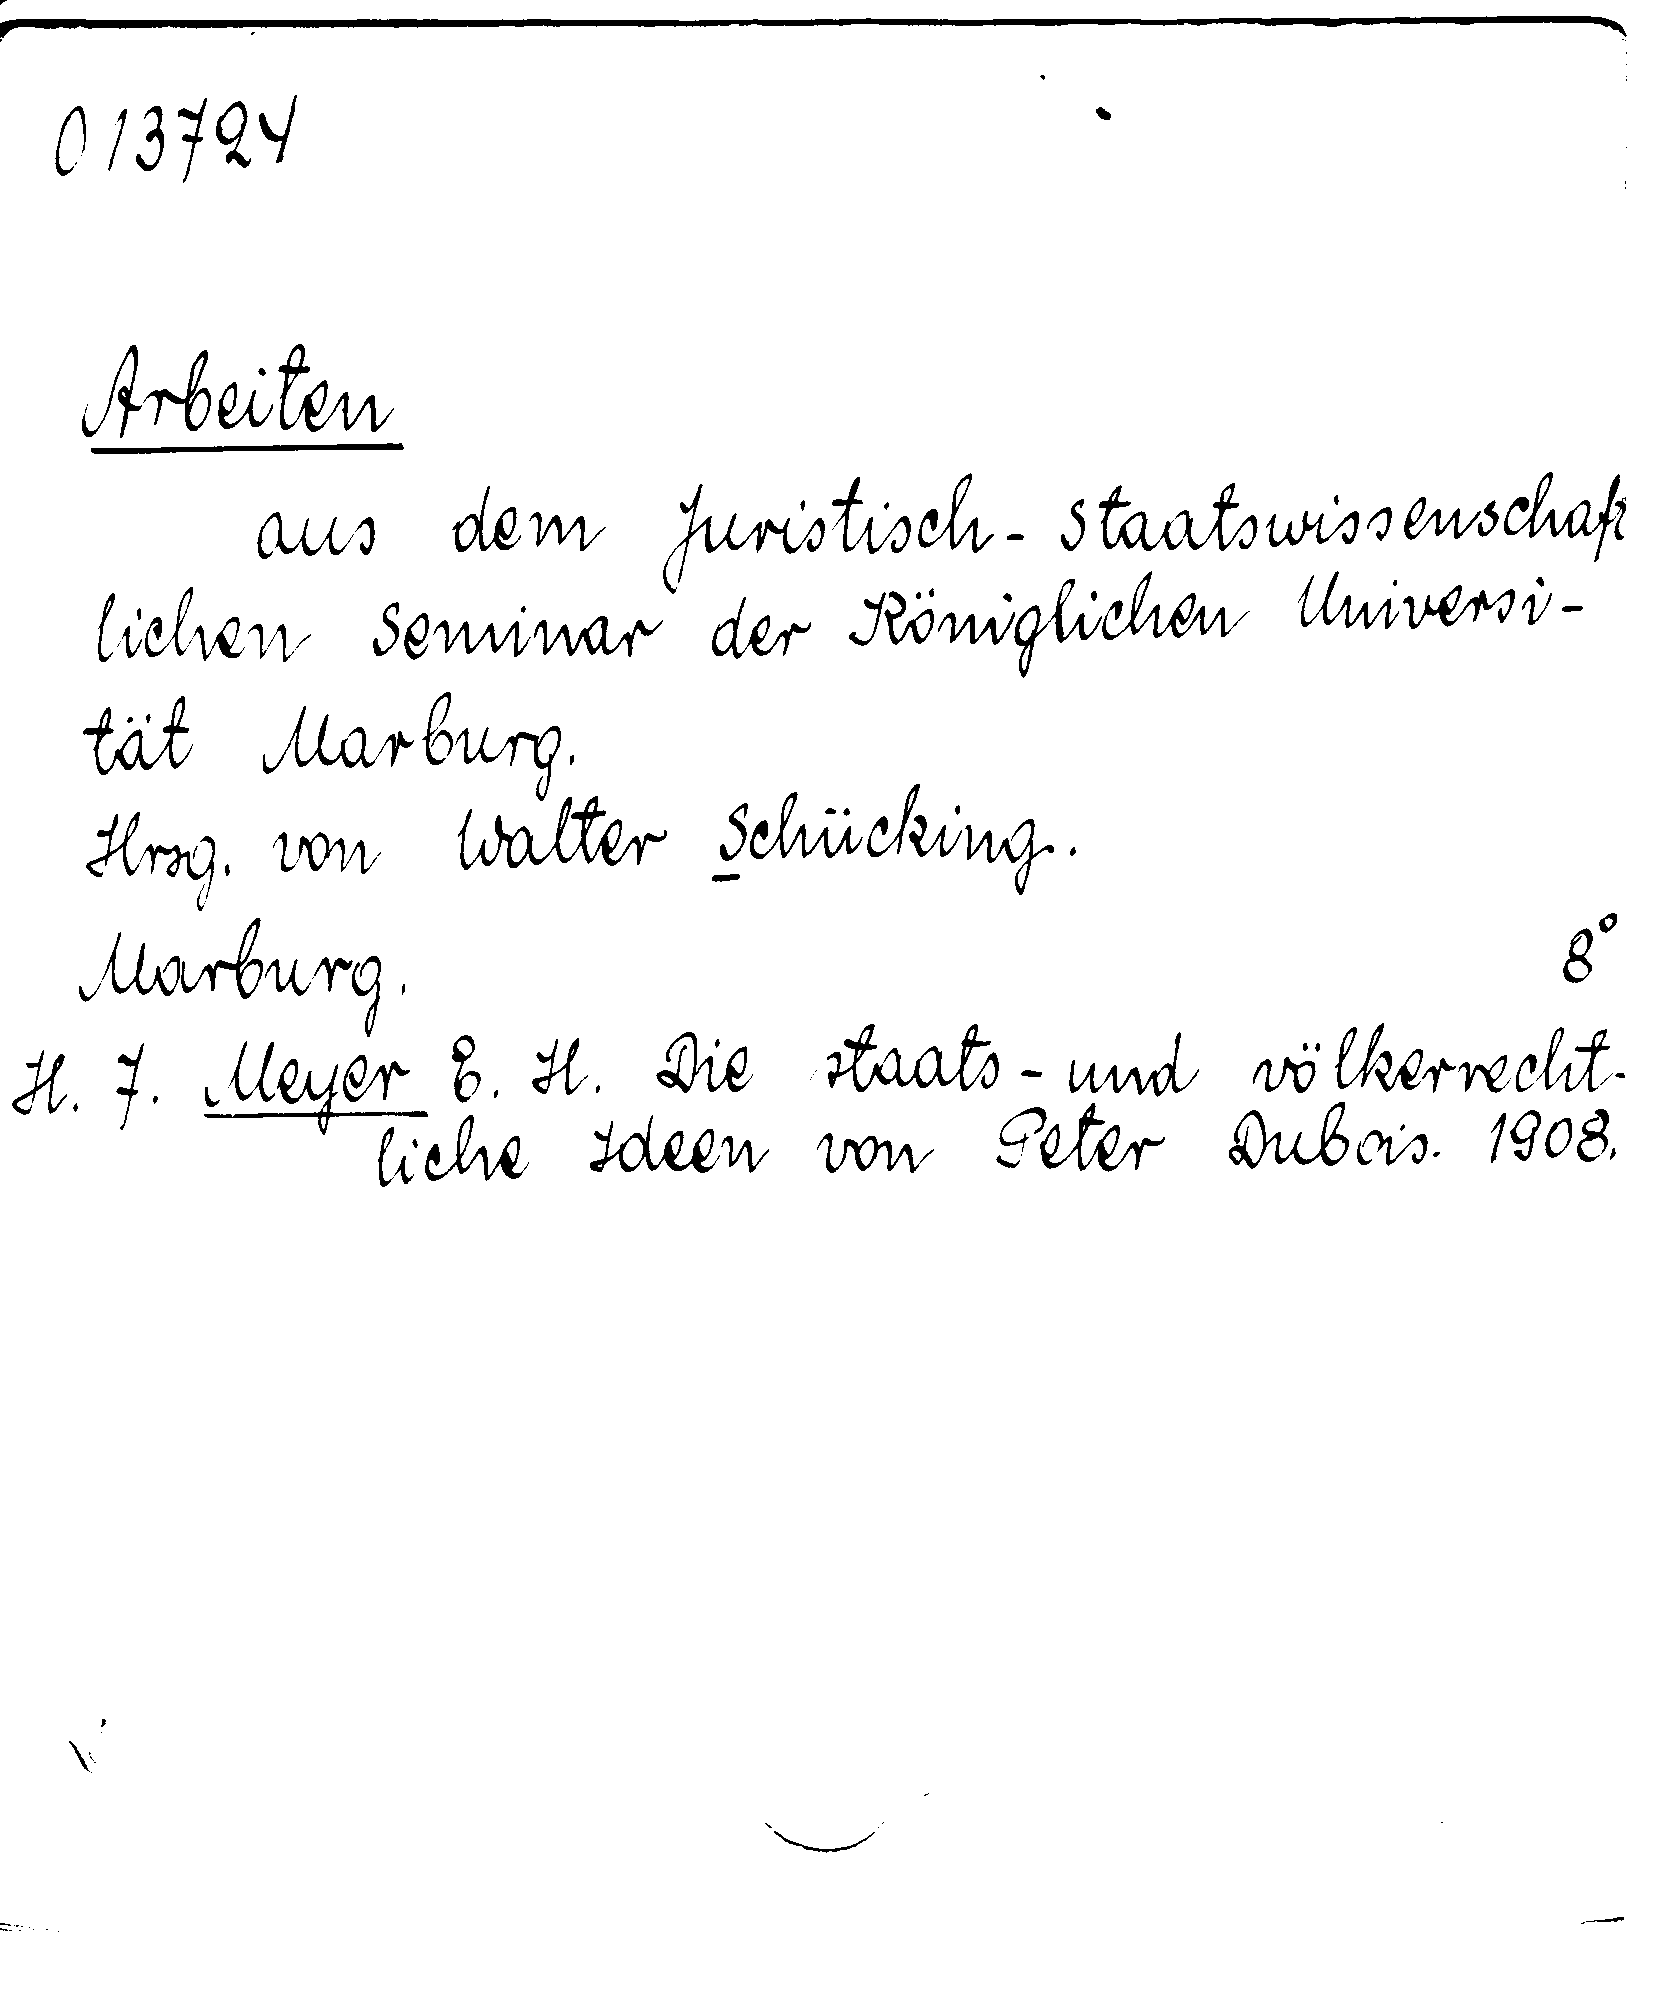 013724
Arbeiten
aus dem Juristisch-Staatswissenschaft
lichen Seminar der Königlichen Universi-
tät Marburg.
Hrsg. von Walter Schücking.
Marburg. 8°
H. 7. Meyer E. H. Die staats- und völkerrecht-
liche Ideen von Peter Dubois. 1908.